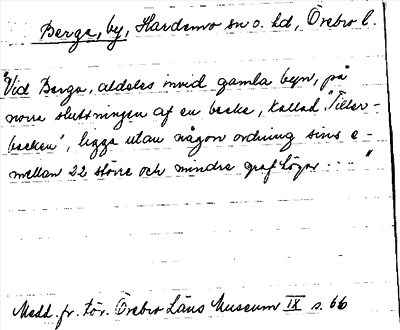 Berga, by, Hardemo sn o. hd, Örebro l.
"Vid Berga, aldeles invid gamla byn, på
norra sluttningen af en backe, kallad "Tiller-
backen", ligga utan någon ordning sins e-
mellan 22 större och mindre grafhögar ... "
Medd. fr. för. Örebro Läns Museum IX s. 66